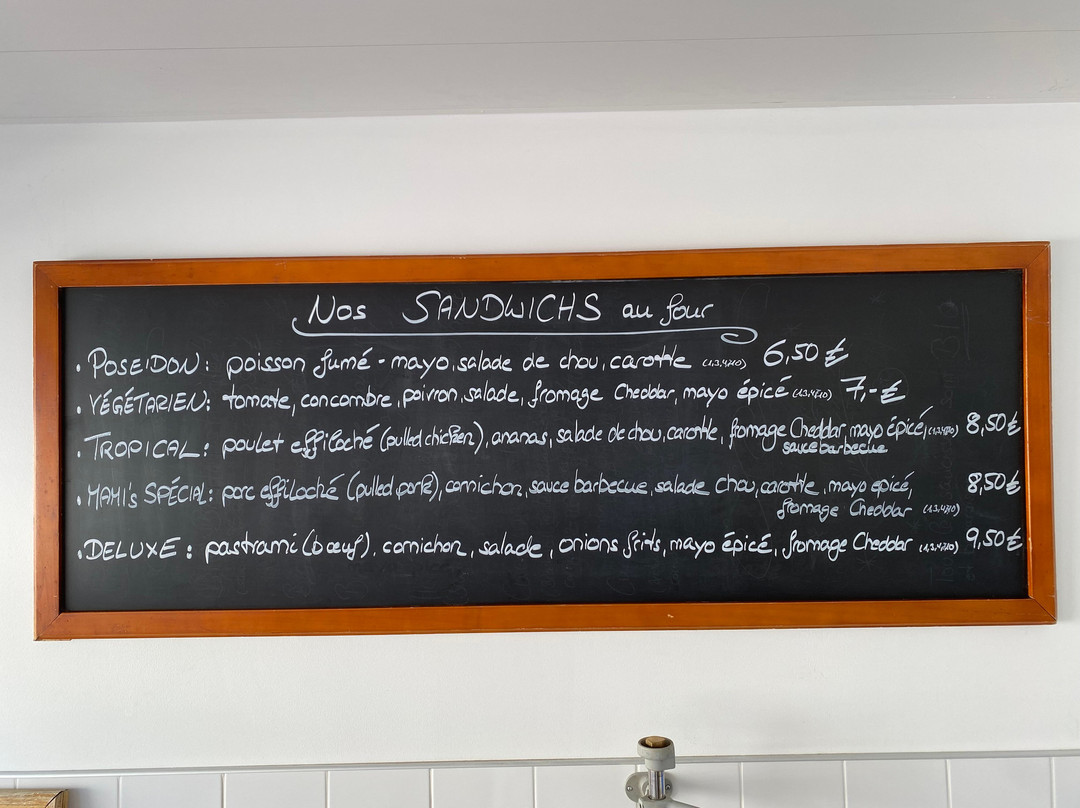 Nos SANDWICHS au four
• POSEIDON: poisson fumé - mayo, salade de chou, carotte (1,3,4,7,10) 6,50 €
• VÉGÉTARIEN: tomate, concombre, poivron, salade, fromage Cheddar, mayo épicé (1,3,4,7,10) 7,- €
• TROPICAL: poulet effiloché (pulled chicken), ananas, salade de chou, carotte, fromage Cheddar, mayo épicé, (1,3,4,7,10) 8,50 €
sauce barbecue
• MAMI's SPÉCIAL: porc effiloché (pulled pork), cornichon, sauce barbecue, salade chou, carotte, mayo epicé, 8,50 €
fromage Cheddar (1,3,4,7,10)
• DELUXE: pastrami (bœuf), cornichon, salade, onions frits, mayo épicé, fromage Cheddar (1,3,4,7,10) 9,50 €